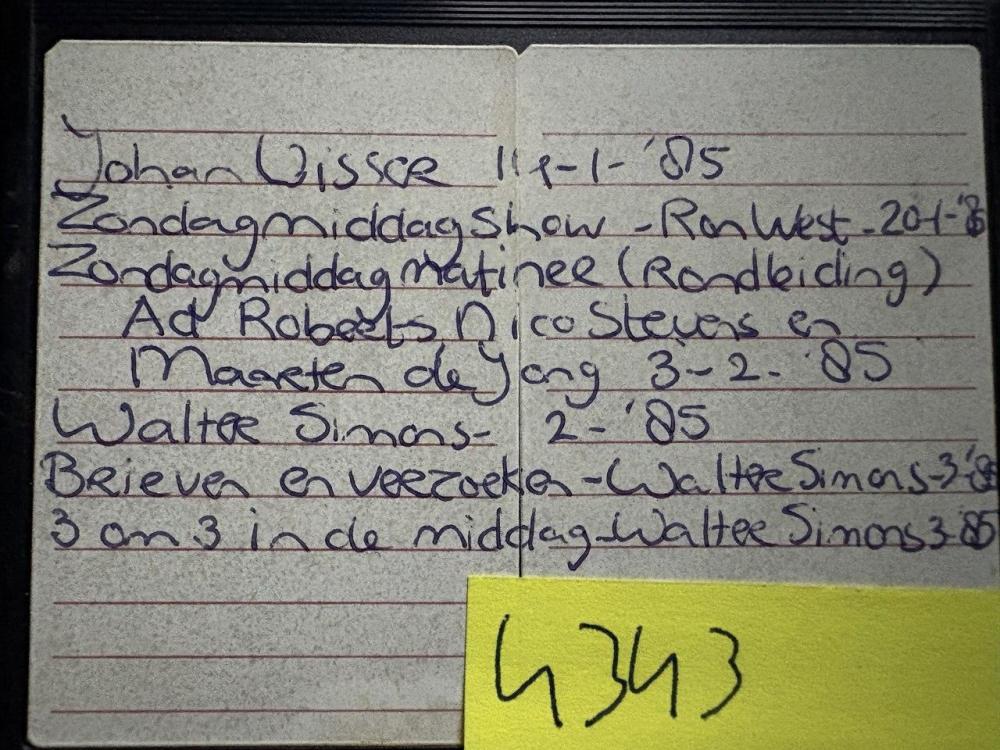 Johan Visser 11-1-'85
Zondagmiddagshow - Ron West - 20-1-'85
Zondagmiddag matinee (Rondleiding)
Ad Roberts, Nico Stevens en
Maarten de Jong 3-2-'85
Walter Simons- 2-'85
Brieven en verzoeken - Walter Simons-3-'85
3 om 3 in de middag-Walter Simons 3-85
4343